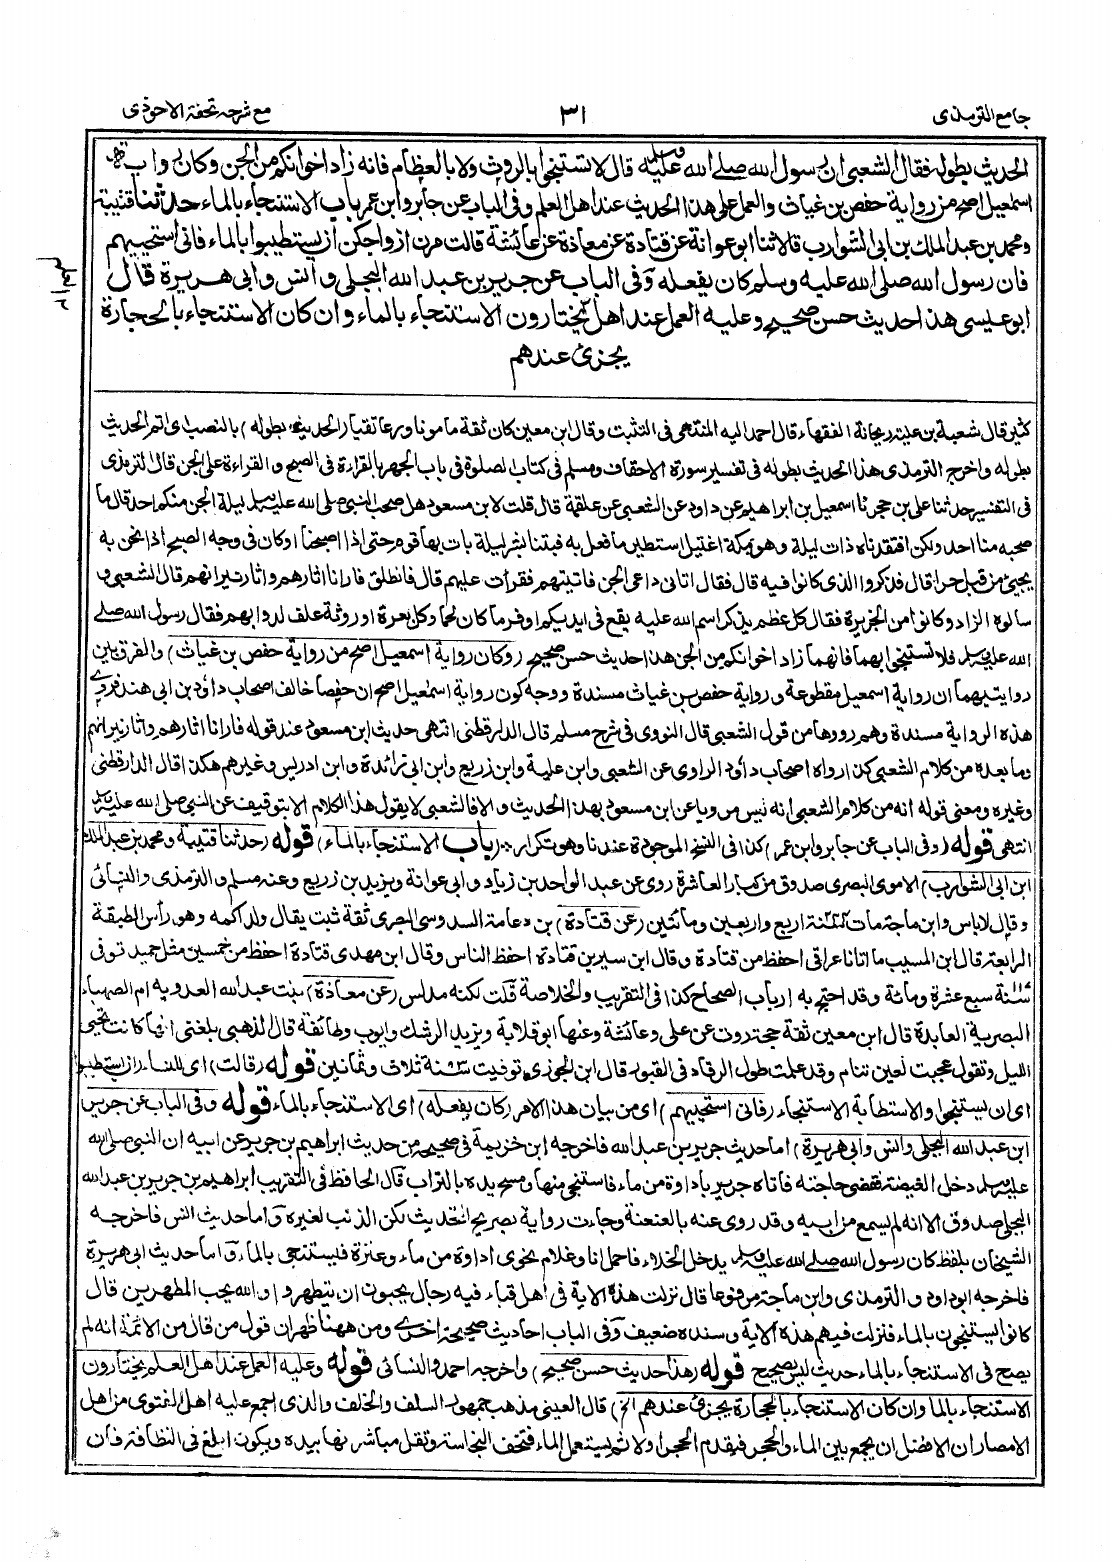 جامع الترمذى ٣١ مع شرحه تحفة الاحوذى
الحديث بطوله فقال الشعبى ان رسول الله صلى الله عليه وسلم قال لا تستنجوا بالروث ولا بالعظام فانه زاد اخوانكم من الجن وكان رواية
اسمعيل اصح من رواية حفص بن غياث والعمل على هذا الحديث عند اهل العلم وفى الباب عن جابر وابن عمر باب الاستنجاء بالماء حدثنا قتيبة
ومحمد بن عبد الملك بن ابى الشوارب قالا ثنا ابو عوانة عن قتادة عن معاذة عن عائشة قالت مرن ازواجكن ان يستطيبوا بالماء فانى استحييهم
فان رسول الله صلى الله عليه وسلم كان يفعله وفى الباب عن جرير بن عبد الله البجلى وانس وابى هريرة قال
ابو عيسى هذا حديث حسن صحيح وعليه العمل عند اهل يختارون الاستنجاء بالماء وان كان الاستنجاء بالحجارة
يجزئ عندهم
كثير قال شعبة بن علية ريحانة الفقهاء قال احمد اليه المنتهى فى التثبت وقال ابن معين كان ثقة مامونا ورعا تقيا (الحديث بطوله) بالنصب اى اتم الحديث
بطوله واخرج الترمذى هذا الحديث بطوله فى تفسير سورة الاحقاف ومسلم فى كتاب الصلوة فى باب الجهر بالقراءة فى الصبح والقراءة على الجن قال الترمذى
فى التفسير حدثنا على بن حجر نا اسمعيل بن ابراهيم عن داود عن الشعبى عن علقمة قال قلت لابن مسعود هل صحب النبى صلى الله عليه وسلم ليلة الجن منكم احد قال ما
صحبه منا احد ولكن افتقدناه ذات ليلة وهو بمكة اغتيل استطير ما فعل به فبتنا بشر ليلة بات بها قوم حتى اذا اصبحنا او كان فى وجه الصبح اذا نحن به
يجيئ من قبل حرا قال فذكروا الذى كانوا فيه قال فقال اتانى داعى الجن فاتيتهم فقرأت عليهم قال فانطلق فارانا اثارهم واثار نيرانهم قال الشعبى و
سالوه الزاد وكانوا من الجزيرة فقال كل عظم يذكر اسم الله عليه يقع فى ايديكم اوفر ما كان لحما وكل بعرة او روثة علف لدوابهم فقال رسول الله صلى
الله عليه وسلم فلا تستنجوا بهما فانهما زاد اخوانكم من الجن هذا حديث حسن صحيح (وكان رواية اسمعيل اصح من رواية حفص بن غياث) والفرق بين
روايتيهما ان رواية اسمعيل مقطوعة ورواية حفص بن غياث مسندة ووجه كون رواية اسمعيل اصح ان حفصا خالف اصحاب داؤد بن ابى هند فروى
هذه الرواية مسندة وهم رووها من قول الشعبى قال النووى فى شرح مسلم قال الدارقطنى انتهى حديث ابن مسعود عند قوله فارانا اثارهم واثار نيرانهم
وما بعده من كلام الشعبى كذا رواه اصحاب داؤد الراوى عن الشعبى وابن علية وابن زريع وابن ابى زائدة وابن ادريس وغيرهم هكذا قال الدارقطنى
وغيره ومعنى قوله انه من كلام الشعبى انه ليس مرويا عن ابن مسعود بهذا الحديث والا فالشعبى لا يقول هذا الكلام الا بتوقيف عن النبى صلى الله عليه وسلم
انتهى قوله (وفى الباب عن جابر وابن عمر) كذا فى النسخ الموجودة عندنا وهو تكرار (باب الاستنجاء بالماء) قوله (حدثنا قتيبة ومحمد بن عبد الملك
ابن ابى الشوارب) الاموى البصرى صدوق من كبار العاشرة روى عن عبد الواحد بن زياد وابى عوانة ويزيد بن زريع وعنه مسلم والترمذى والنسائى
وقال لا باس وابن ماجة مات سنة اربع واربعين ومائتين (عن قتادة) بن دعامة السدوسى البصرى ثقة ثبت يقال ولد اكمه وهو رأس الطبقة
الرابعة قال ابن المسيب ما اتانا عراقى احفظ من قتادة وقال ابن سيرين قتادة احفظ الناس وقال ابن مهدى قتادة احفظ من خمسين مثل حميد توفى
سنة سبع عشرة ومائة وقد احتج به ارباب الصحاح كذا فى التقريب والخلاصة قلت لكنه مدلس (عن معاذة) بنت عبد الله العدويه ام الصهباء
البصرية العابدة قال ابن معين ثقة حجة روت عن على وعائشة وعنها ابو قلابة ويزيد الرشك وايوب وطائفة قال الذهبى بلغنى انها كانت تحيى
الليل وتقول عجبت لعين تنام وقد علمت طول الرقاد فى القبور قال ابن الجوزى توفيت سنة ثلاث وثمانين قوله (قالت) اى للنساء (ان يستطيبوا)
اى ان يستنجوا والاستطابة الاستنجاء (فانى استحييهم) اى من بيان هذا الامر (كان يفعله) اى الاستنجاء بالماء قوله (وفى الباب عن جرير
ابن عبد الله البجلى وانس وابى هريرة) اما حديث جرير بن عبد الله فاخرجه ابن خزيمة فى صحيحه من حديث ابراهيم بن جرير عن ابيه ان النبى صلى الله
عليه وسلم دخل الغيضة فقضى حاجته فأتاه جرير باداوة من ماء فاستنجى منها ومسح يده بالتراب قال الحافظ فى التقريب ابراهيم بن جرير بن عبد الله
البجلى صدوق الا انه لم يسمع من ابيه وقد روى عنه بالعنعنة وجاءت رواية بصريح التحديث لكن الذنب لغيره واما حديث انس فاخرجه
الشيخان بلفظ كان رسول الله صلى الله عليه وسلم يدخل الخلاء فاحمل انا وغلام نحوى اداوة من ماء وعنزة فيستنجى بالماء واما حديث ابى هريرة
فاخرجه ابو داود والترمذى وابن ماجة مرفوعا قال نزلت هذه الاية فى اهل قباء فيه رجال يحبون ان يتطهروا والله يحب المطهرين قال
كانوا يستنجون بالماء فنزلت فيهم هذه الاية وسنده ضعيف وفى الباب احاديث صحيحة اخرى ومن ههنا ظهر ان قول من قال من الائمة انه لم
يصح فى الاستنجاء بالماء حديث ليس بصحيح قوله (هذا حديث حسن صحيح) واخرجه احمد والنسائى قوله (وعليه العمل عند اهل العلم يختارون
الاستنجاء بالماء وان كان الاستنجاء بالحجارة يجزئ عندهم الخ) قال العينى مذهب جمهور السلف والخلف والذى اجمع عليه اهل الفتوى من اهل
الامصار ان الافضل ان يجمع بين الماء والحجر فيقدم الحجر اولا ثم يستعمل الماء فتخف النجاسة وتقل مباشرتها بيده ويكون ابلغ فى النظافة فان